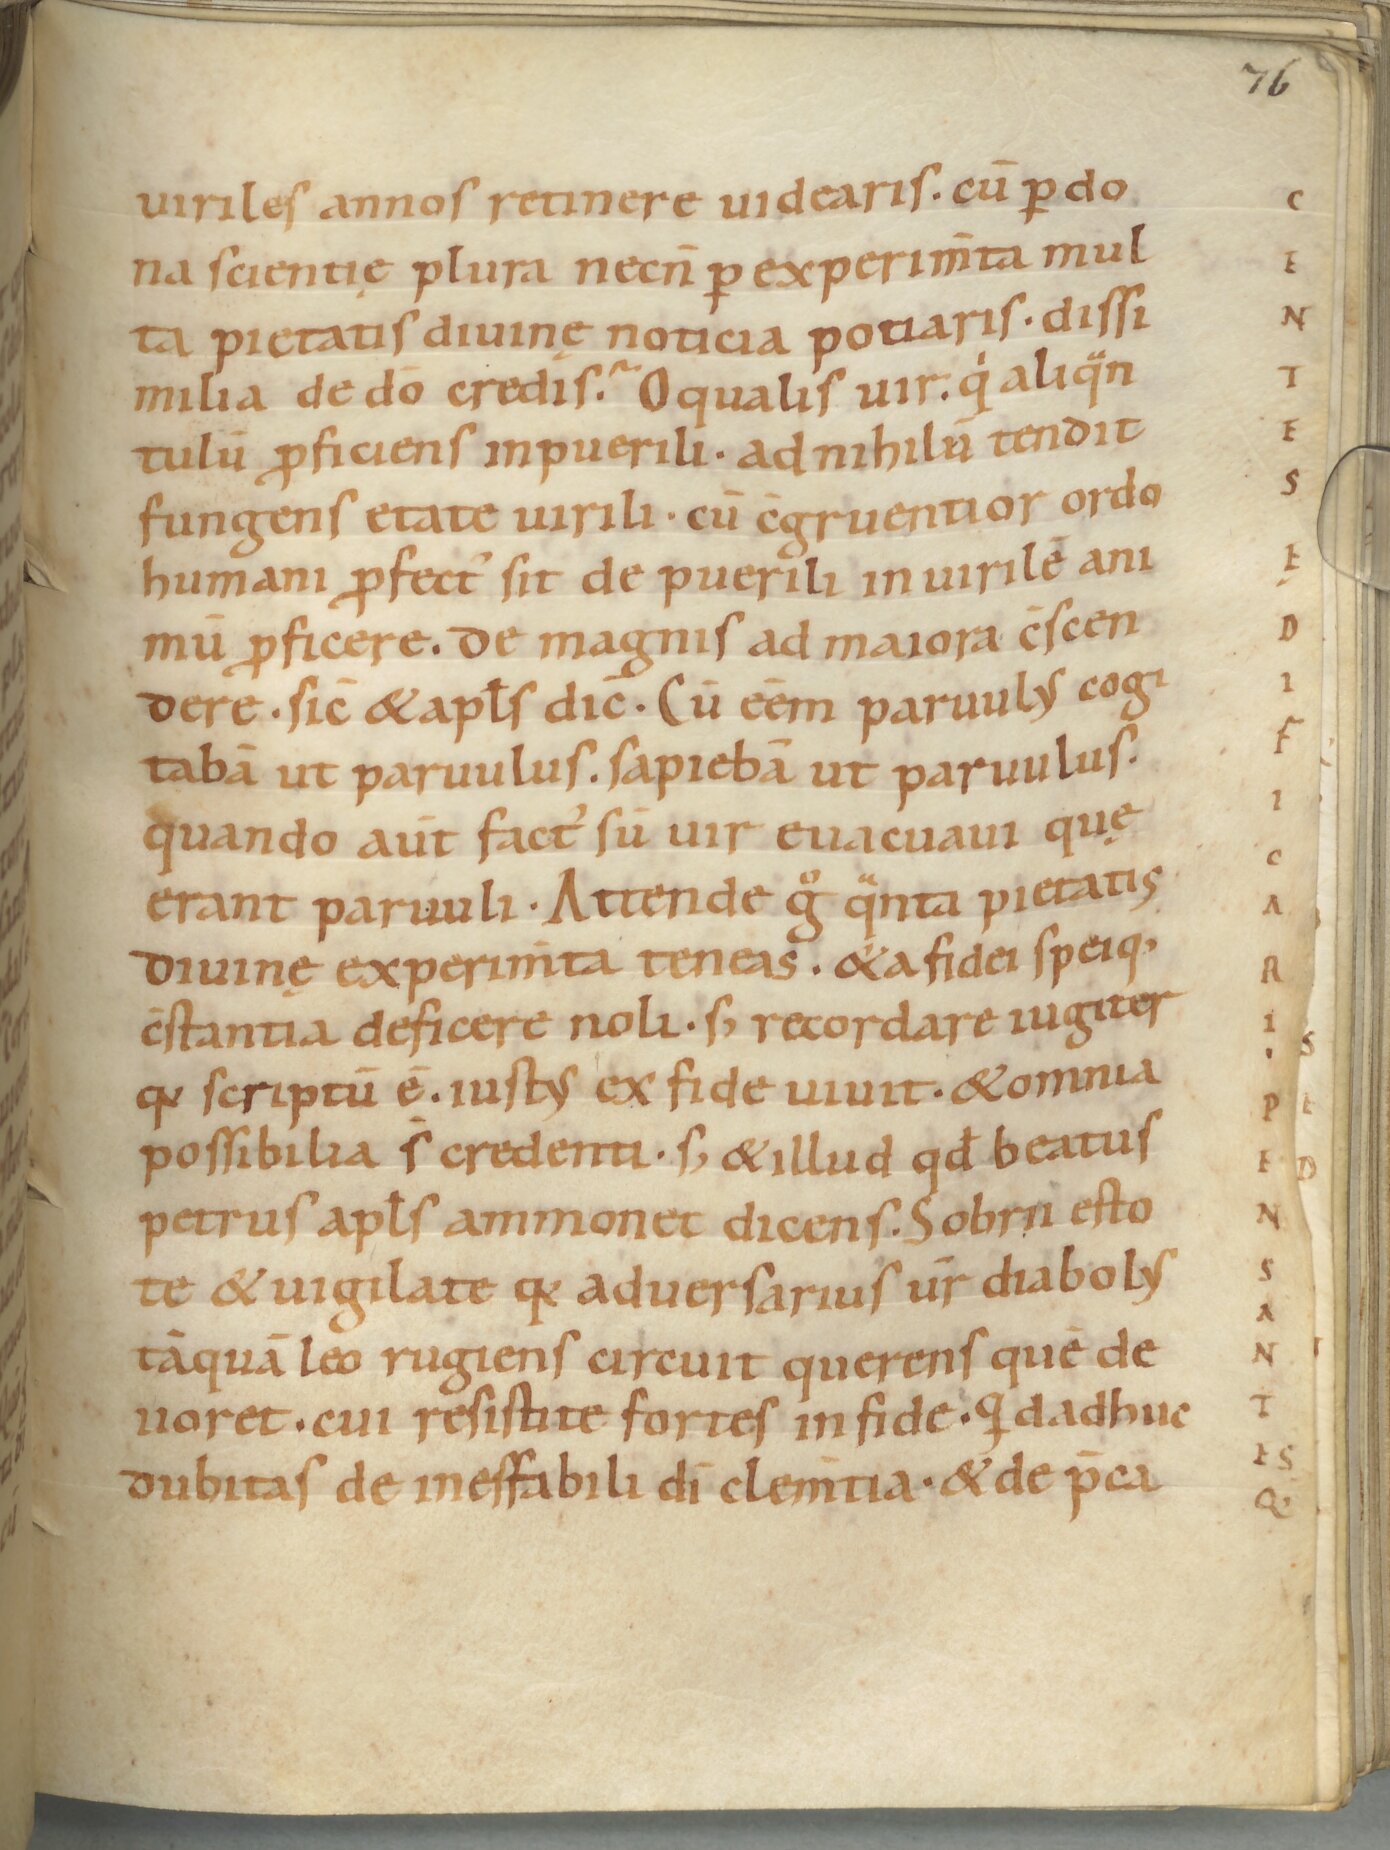 76
uiriles annos retinere uidearis. cū ꝑ do
na scientię plura necn̄ ꝑ experim̄ta mul
ta pietatis diuinę noticia potiaris. dissi
milia de dō credis. O qualis uir. qͥ aliqᷓn
tulū ꝓficiens in puerili. ad nihilū tendit
fungens etate uirili. cū c̄gruentior ordo
humani ꝓfectꝰ sit de puerili in uirilē ani
mū ꝓficere. de magnis ad maiora c̄scen
dere. sic̄ & apƚs dic̄. Cū eēm paruulus cogi
tabā ut paruulus. sapiebā ut paruulus.
quando aūt factꝰ sū uir euacuaui quę
erant paruuli. Attende gͦ qᷓnta pietatis
diuinę experim̄ta teneas. & a fidei speiq;
c̄stantia deficere noli. s; recordare iugiter
qꝛ scriptū ē. iustus ex fide uiuit. & omnia
possibilia s̄ credenti. s; & illud qđ beatus
petrus apƚs ammonet dicens. Sobrii esto
te & uigilate qꝛ aduersarius ur̄ diabolus
tāquā leo rugiens circuit querens quē de
uoret. cui resistite fortes in fide. Qd adhuc
dubitas de ineffabili dī clem̄tia. & de p̄cā
C
E
N
T
E
S
Ę
D
I
F
I
C
A
R
I
.
P
E
N
S
A
N
T
ES
Q;